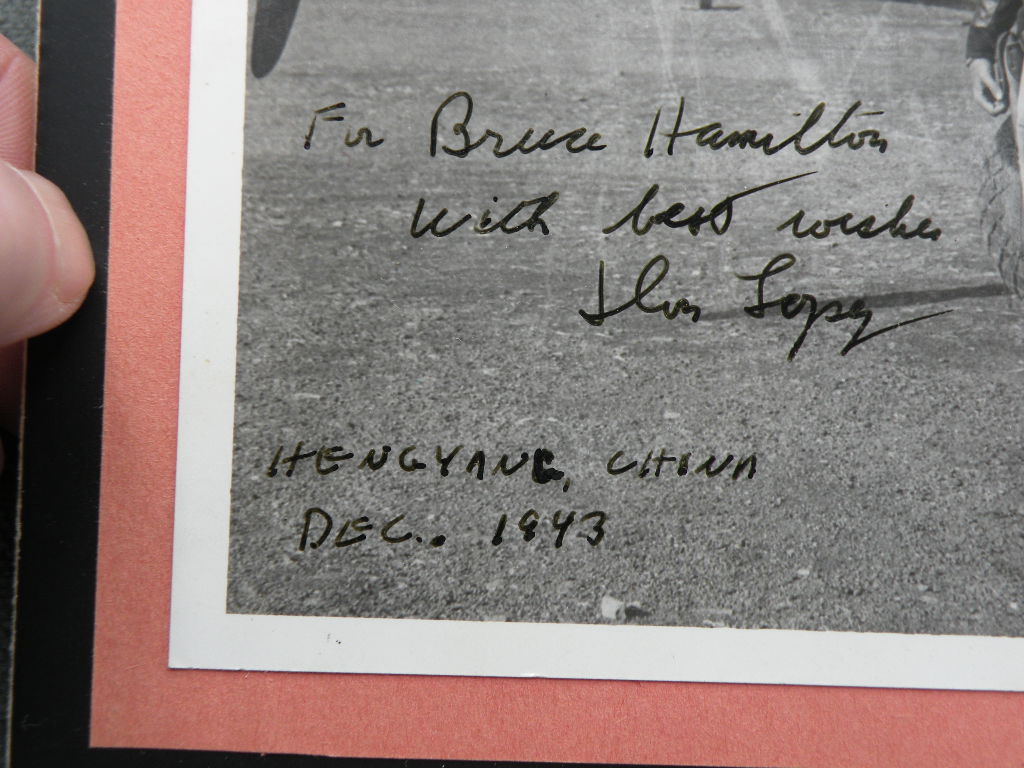 For Bruce Hamilton
With best wishes
Don Lopez
HENGYANG, CHINA
DEC.. 1943